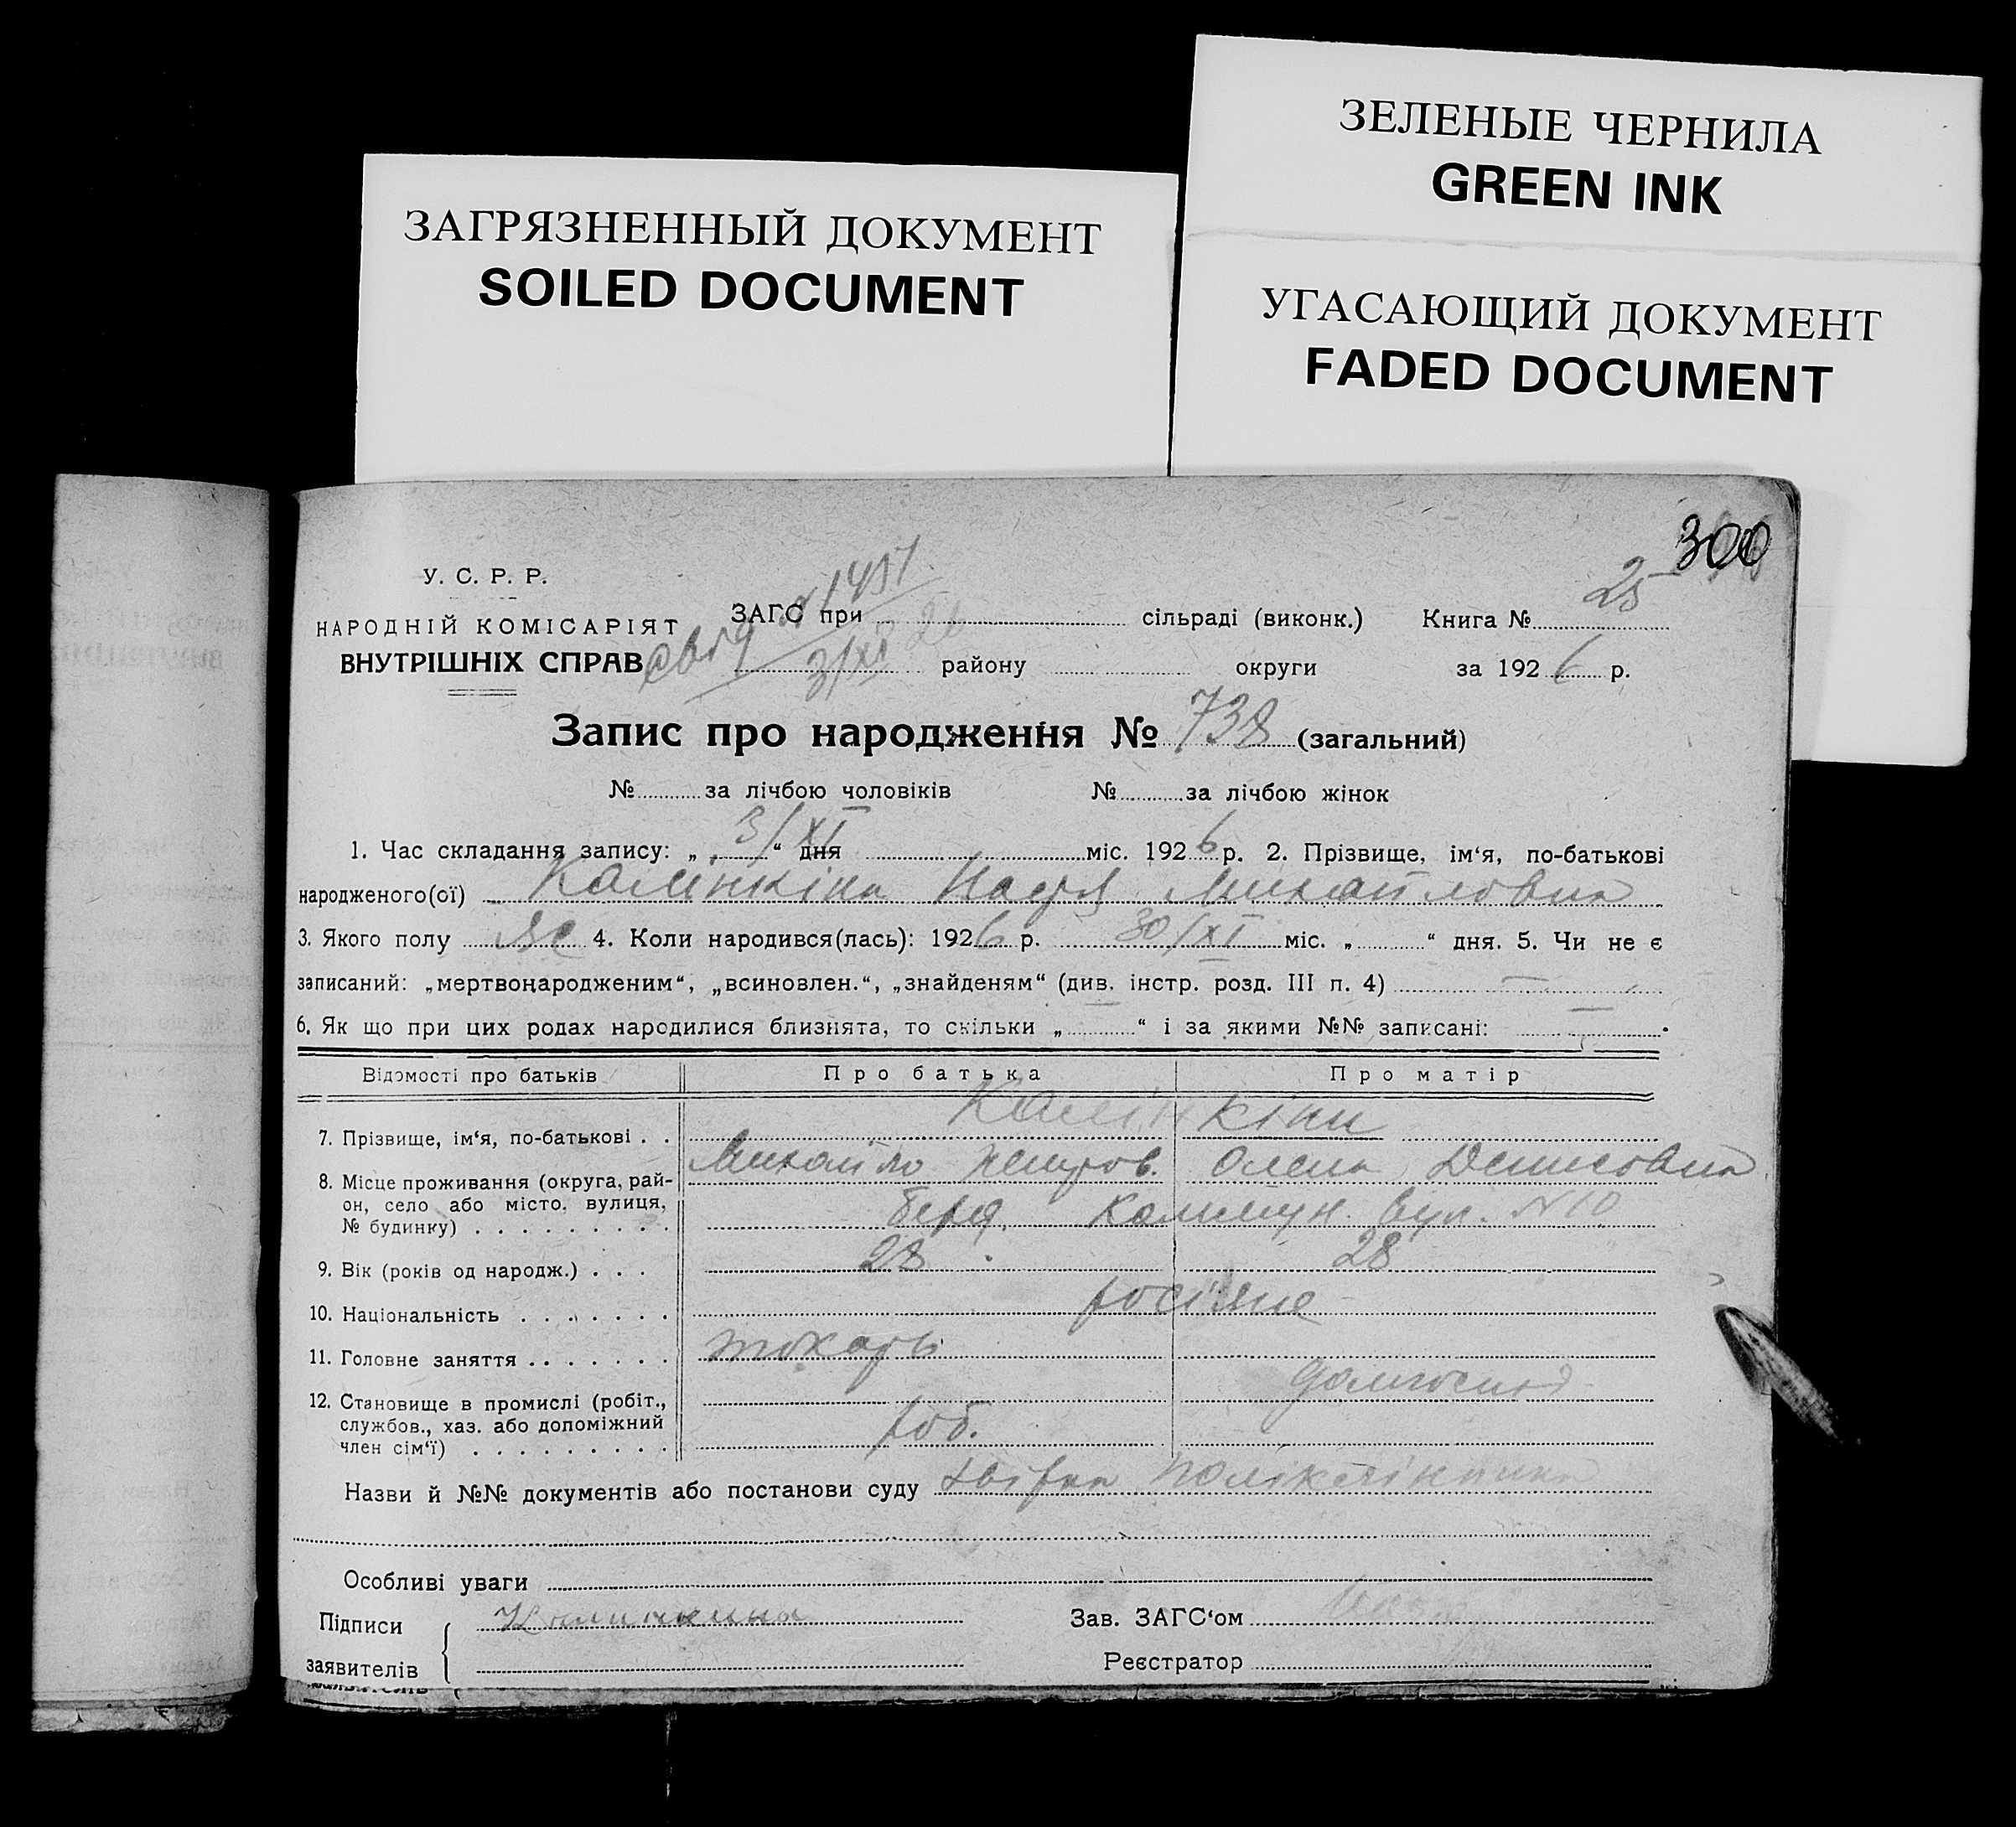 ЗЕЛЕНЫЕ ЧЕРНИЛА
GREEN INK
ЗАГРЯЗНЕННЫЙ ДОКУМЕНТ
SOILED DOCUMENT
УГАСАЮЩИЙ ДОКУМЕНТ
FADED DOCUMENT
300
У. С. Р. Р.
НАРОДНІЙ КОМІСАРІЯТ
ВНУТРІШНІХ СПРАВ
свід
3/XI 26
ЗАГС при сільраді (виконк.) Книга № 25
району округи за 1926 р.
Запис про народження № 738 (загальний)
№ за лічбою чоловіків № за лічбою жінок
1. Час складання запису: „3/XI“ дня міс. 1926 р. 2. Прізвище, ім‘я, по-батькові
народженого(ої) Калинкіна Надія Михайловна
3. Якого полу Ж 4. Коли народився(лась): 1926 р. 30/XI міс. „ “ дня. 5. Чи не є
записаний: „мертвонародженим“, „всиновлен.“, „знайденям“ (див. інстр. розд. III п. 4) —
6. Як що при цих родах народилися близнята, то скільки „ “ і за якими №№ записані: —
Відомості про батьків Про батька Про матір
Калінкіни
7. Прізвище, ім‘я, по-батькові . . Михайло Петров. Олена Денисовна
8. Місце проживання (округа, рай-
он, село або місто, вулиця,
№ будинку) . . . . . . . . . Берд. Комун. вул. №10
9. Вік (років од народж.) . . . 28 28
10. Національність . . . . . . . росіяне
11. Головне заняття . . . . . . . токарь
домгоспод
12. Становище в промислі (робіт.,
службов., хаз. або допоміжний
член сім‘ї) . . . . . . . . . роб.
Назви й №№ документів або постанови суду довідка поліклініки
Особливі уваги
Підписи Калинкина Зав. ЗАГС‘ом
заявителів Реєстратор